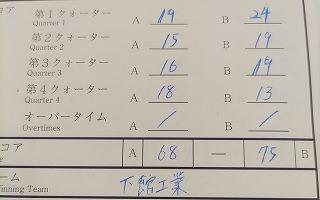 コア 第1クォーター A 19 B 24
Quarter 1
第2クォーター A 15 B 19
Quarter 2
第3クォーター A 16 B 19
Quarter 3
第4クォーター A 18 B 13
Quarter 4
オーバータイム A / B /
Overtimes
コア A 68 — 75 B
ーム 下館工業
inning Team